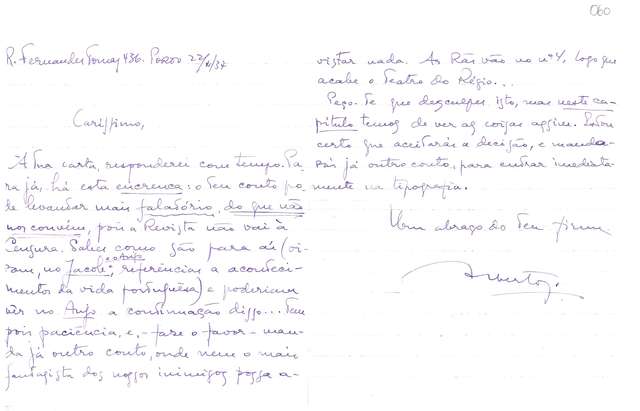 060
R. Fernandes Tomaz 436. PORTO 22/XI/37
Caríssimo,
À tua carta, responderei com tempo. Pa-
ra já, há esta encrenca: o teu conto po-
de levantar mais falatório, do que não
nos convém, pois a Revista não vai à
Censura. Sabes como são para aí (vi-
ram, no Jacob e o Anjo, referências a aconteci-
mentos da vida portuguesa) e poderiam
vêr no Anjo a continuação disso... Tem
pois paciência, e, - fare o favor - man-
da já outro conto, onde nem o mais
fantasista dos nossos inimigos possa a-
vistar nada. As Rãs vão no nº 4, logo que
acabe o Teatro do Régio...
Peço-te que desculpes isto, mas neste ca-
pítulo temos de ver as coisas assim. Estou
certo que aceitarás a decisão, e manda-
rás já outro conto, para entrar imediata-
mente na tipografia.
Um abraço do teu firme
Alberto